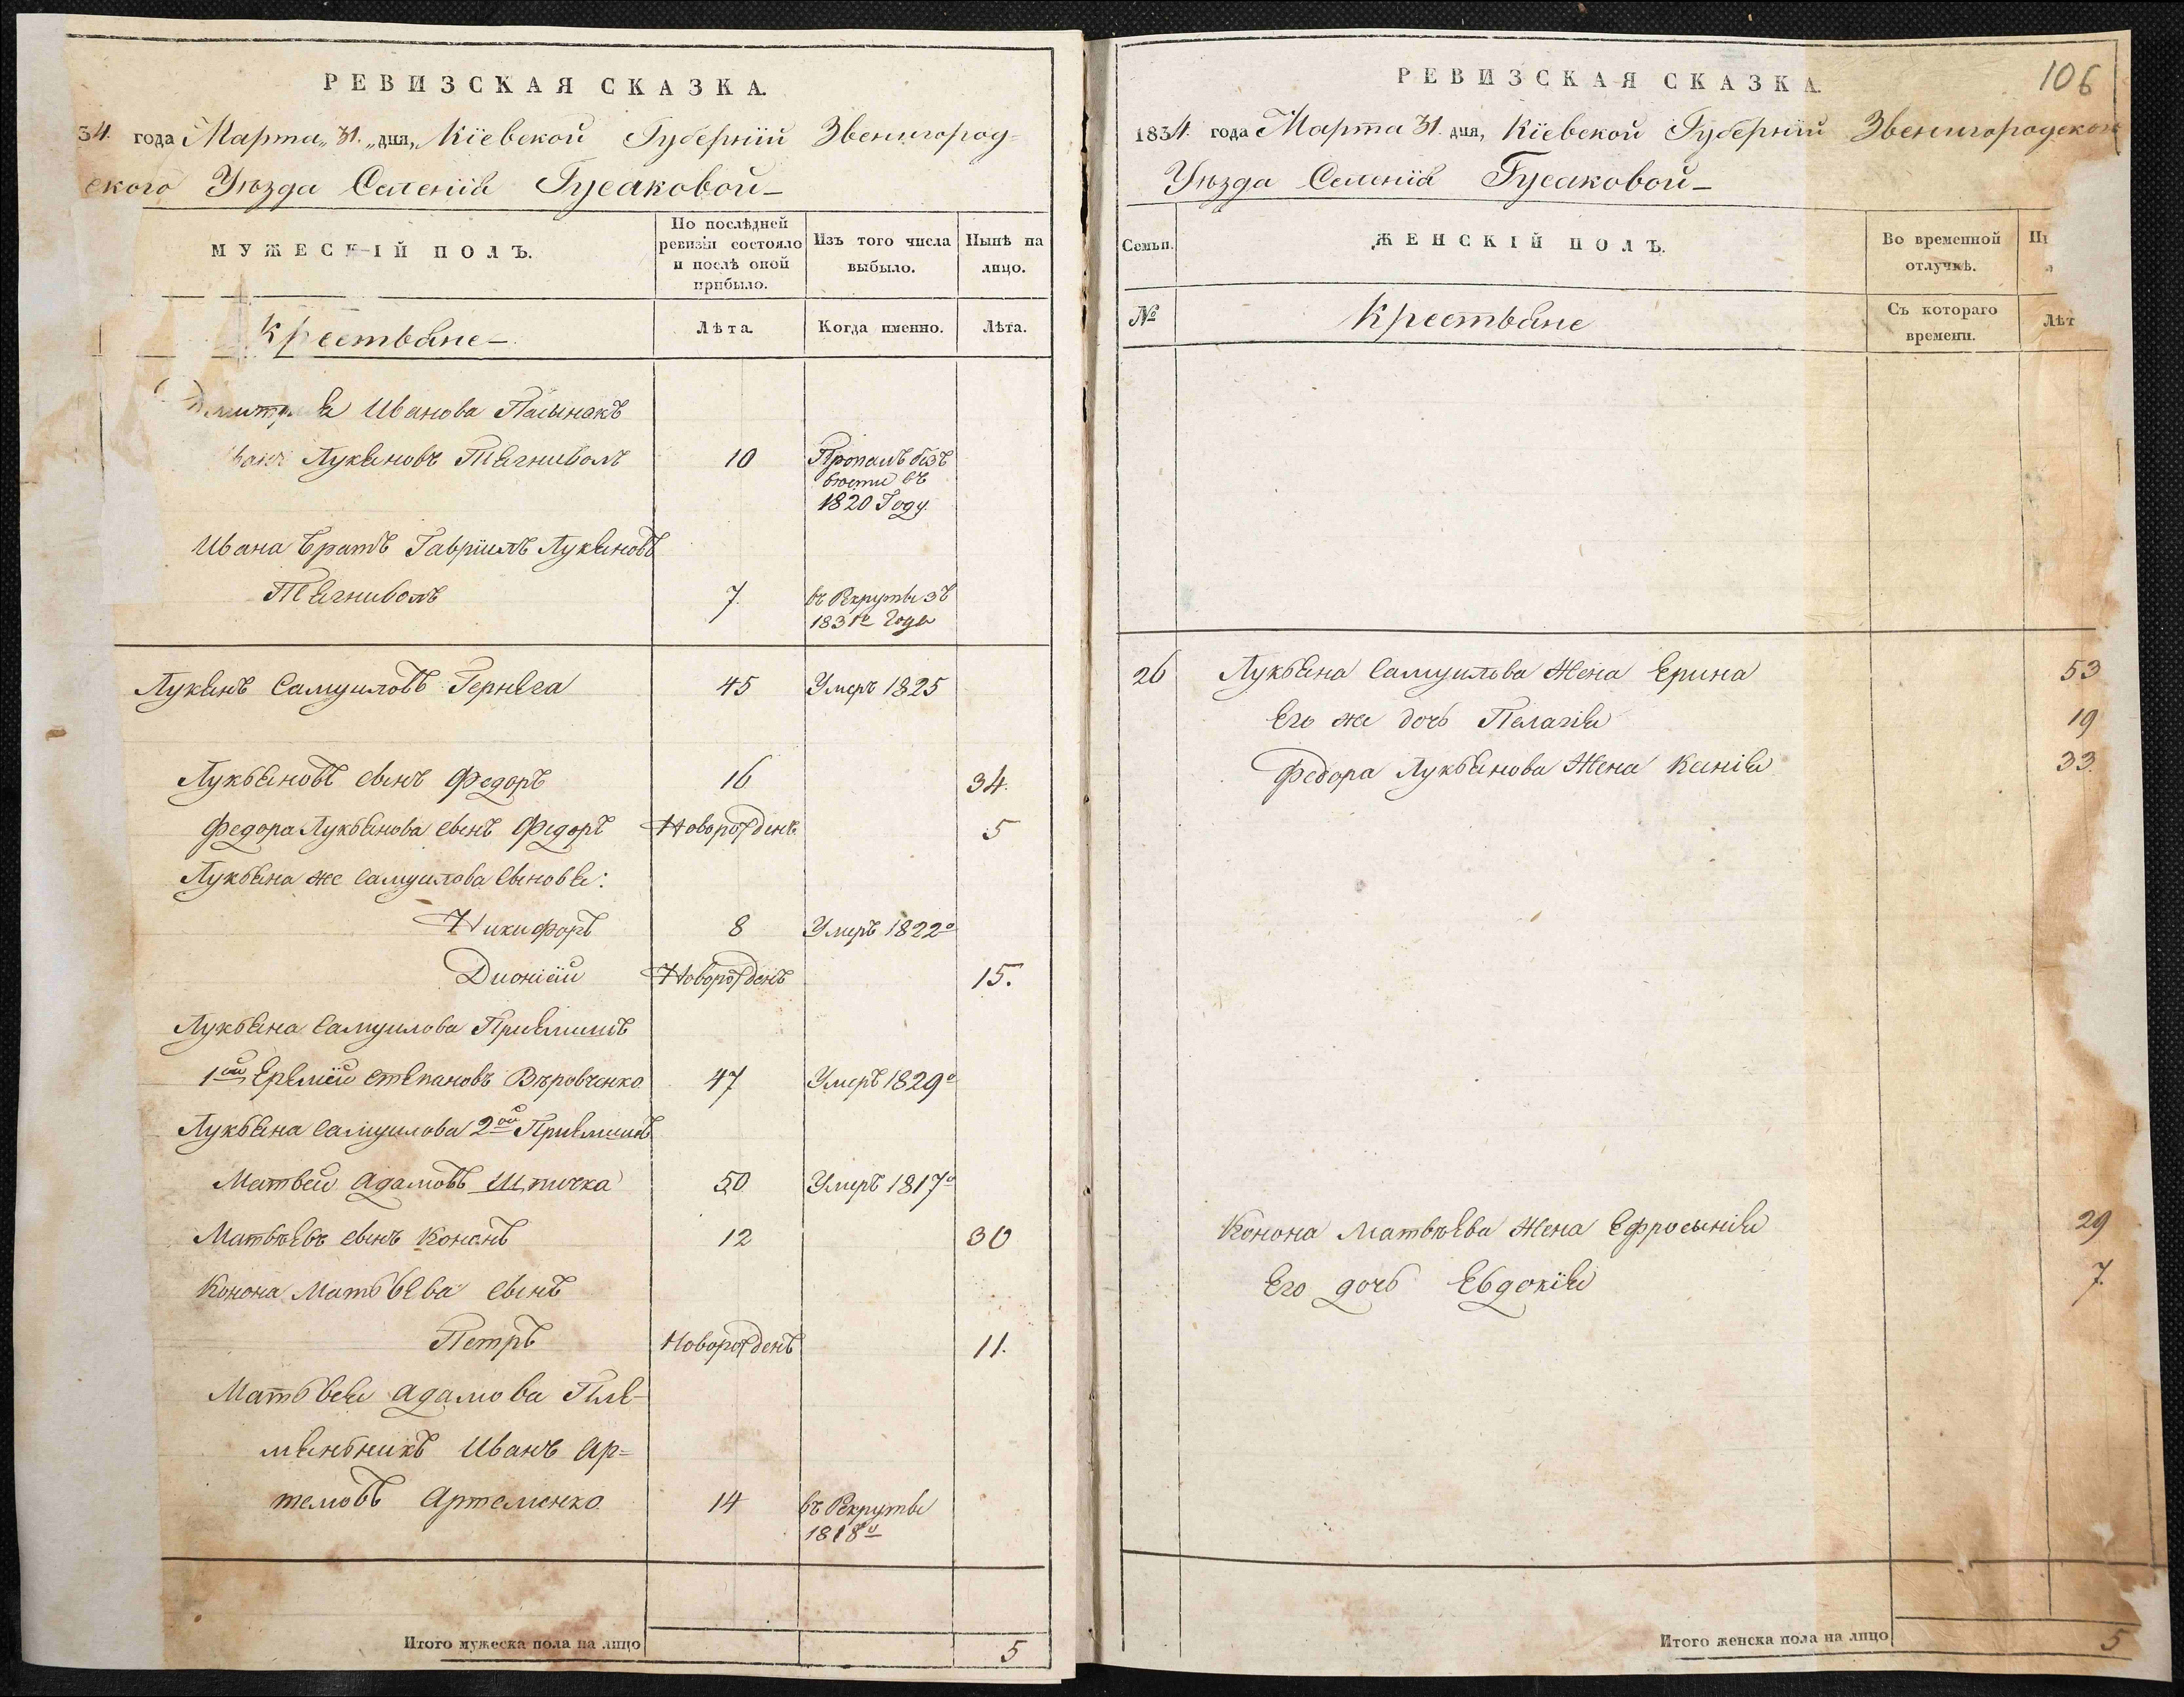 РЕВИЗСКАЯ СКАЗКА.
34. года Марта „31.„ дня, Кіевской Губерніи Звенигород-
ского Уѣзда Селенія Гусаковой
МУЖЕСКІЙ ПОЛЪ.
По послѣдней ревизіи состояло и послѣ оной прибыло.
Изъ того числа выбыло.
Нынѣ на лицо.
Крестьяне
Лѣта.
Когда именно.
Лѣта.
Иванова Пасынакъ
Лукяновъ Тягниволъ 10 Пропалъ безъ
вѣсти въ
1820 Году
Ивана Братъ Гавріилъ Лукяновъ
Тягниволъ 7. въ Рекруты зъ
1831го Года
Лукянъ Самуиловъ Герняга 45 Умеръ 1825
Лукьяновъ сынъ Федоръ 16 34.
Федора Лукьянова сынъ Федоръ Новорожденъ 5
Лукьяна же Самуилова Сыновья:
Никифоръ 8 Умеръ 1822го
Дионісій Новорожденъ 15.
Лукьяна Самуилова Приемишъ
1ой Еремей Степановъ Вѣровченко 47 Умеръ 1829го
Лукьяна Самуилова 2ой Приемишъ
Матвей Адамовъ Шпичка 50 Умеръ 1817го
Матвѣевъ сынъ Кононъ 12 30
Конона Матвѣева сынъ
Петръ Новорожденъ 11.
Матьвея Адамова Пле-
мяньникъ Иванъ Ар=
темовъ Артеменко 14 въ Рекруты
1818го
Итого мужеска пола на лицо 5
РЕВИЗСКАЯ СКАЗКА.
106
1834. года Марта 31. дня, Кіевской Губерніи Звенигородской
Уѣзда Селенія Гусаковой
Семьи.
ЖЕНСКІЙ ПОЛЪ.
Во временной отлучкѣ.
№
Крестьяне
Съ котораго времени.
Лѣт
26 Лукьяна Самуилова Жена Ерина 53
Его же дочь Пелагія 19
Федора Лукьянова Жена Ксенія 33.
Конона Матвѣева Жена Ефросынія 29
Его дочь Евдокія 7.
Итого женска пола на лицо 5